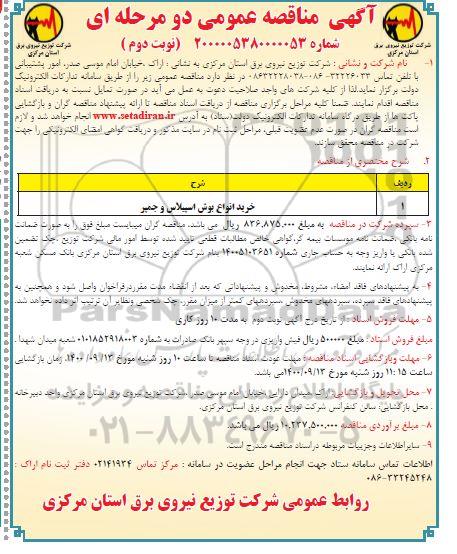 آگهی مناقصه عمومی دو مرحله ای
شماره 2000005380000053 (نوبت دوم)
شرکت توزیع نیروی برق
استان مرکزی
شرکت توزیع نیروی برق
استان مرکزی
۱- نام شرکت و نشانی : شرکت توزیع نیروی برق استان مرکزی به نشانی : اراک ،خیابان امام موسی صدر، امور پشتیبانی
با تلفن تماس ۳۳۲۲۶۰۳۳-۰۸۶ ۰۸۶۳۲۲۲۸۰۳۸ در نظر دارد مناقصه عمومی زیر را از طریق سامانه تدارکات الکترونیک
دولت برگزار نماید.لذا از کلیه شرکت های واجد صلاحیت دعوت به عمل می آید در صورت تمایل نسبت به دریافت اسناد
مناقصه اقدام نمایند. ضمنا کلیه مراحل برگزاری مناقصه از دریافت اسناد مناقصه تا ارائه پیشنهاد مناقصه گران و بازگشایی
پاکت ها از طریق درگاه سامانه تدارکات الکترونیک دولت(ستاد) به آدرس www.setadiran.ir انجام خواهد شد و لازم
است مناقصه گران در صورت عدم عضویت قبلی، مراحل ثبت نام در سایت مذکور و دریافت گواهی امضای الکترونیکی را جهت
شرکت در مناقصه محقق سازند.
۲. شرح مختصری از مناقصه
ردیف شرح
۱ خرید انواع بوش اسپیلاس و جمپر
۳- سپرده شرکت در مناقصه به مبلغ ۸۳۶,۸۷۵,۰۰۰ ریال می باشد. مناقصه گران میبایست مبلغ فوق را به صورت ضمانت
نامه بانکی،ضمانت نامه موسسات بیمه گر،گواهی خالص مطالبات قطعی تایید شده توسط امور مالی شرکت توزیع ،چک تضمین
شده بانکی یا واریز وجه به حساب جاری شماره ۱۴۰۰۵۱۰۳۶۵۱ بنام شرکت توزیع نیروی برق استان مرکزی بانک مسکن شعبه
مرکزی اراک ارائه نمایند.
۴- به پیشنهادهای فاقد امضاء، مشروط، مخدوش و پیشنهاداتی که بعد از انقضاء مدت مقرردرفراخوان واصل شود و همچنین به
پیشنهادهای فاقد سپرده، سپرده‎های مخدوش ،سپرده‎های کمتر از میزان مقرر، چک شخصی ونظایر آن ترتیب اثر داده نخواهد شد.
۵- مهلت فروش اسناد : از تاریخ درج آگهی نوبت دوم به مدت ۱۰ روز کاری
مبلغ فروش اسناد : مبلغ ۵۰۰۰۰۰ ریال فیش واریزی در وجه سپهر بانک صادرات به شماره ۰۱۰۱۸۵۲۹۱۸۰۰۳ شعبه میدان شهدا .
۶- مهلت وبازگشایی اسناد مناقصه: مهلت عودت اسناد مناقصه تا ساعت ۱۰ روز شنبه مورخ ۱۴۰۰/۰۹/۱۳ زمان بازگشایی
ساعت ۱۱:۱۵ روز شنبه مورخ ۱۴۰۰/۰۹/۱۳می باشد.
۷- محل تحویل و بازگشایی: اراک ،میدان دارایی ،خیابان امام موسی صدر ،شرکت توزیع نیروی برق استان مرکزی واحد دبیرخانه
. محل بازگشایی: سالن کنفرانس شرکت توزیع نیروی برق استان مرکزی.
۸- مبلغ برآوردی مناقصه ۱۰,۲۳۷,۵۰۰,۰۰۰ ریال می باشد.
۹- سایراطلاعات وجزییات مربوطه دراسناد مناقصه مندرج است.
اطلاعات تماس سامانه ستاد جهت انجام مراحل عضویت در سامانه : مرکز تماس ۰۲۱۴۱۹۳۴ دفتر ثبت نام اراک :
۰۸۶-۳۳۲۴۵۲۴۸
روابط عمومی شرکت توزیع نیروی برق استان مرکزی